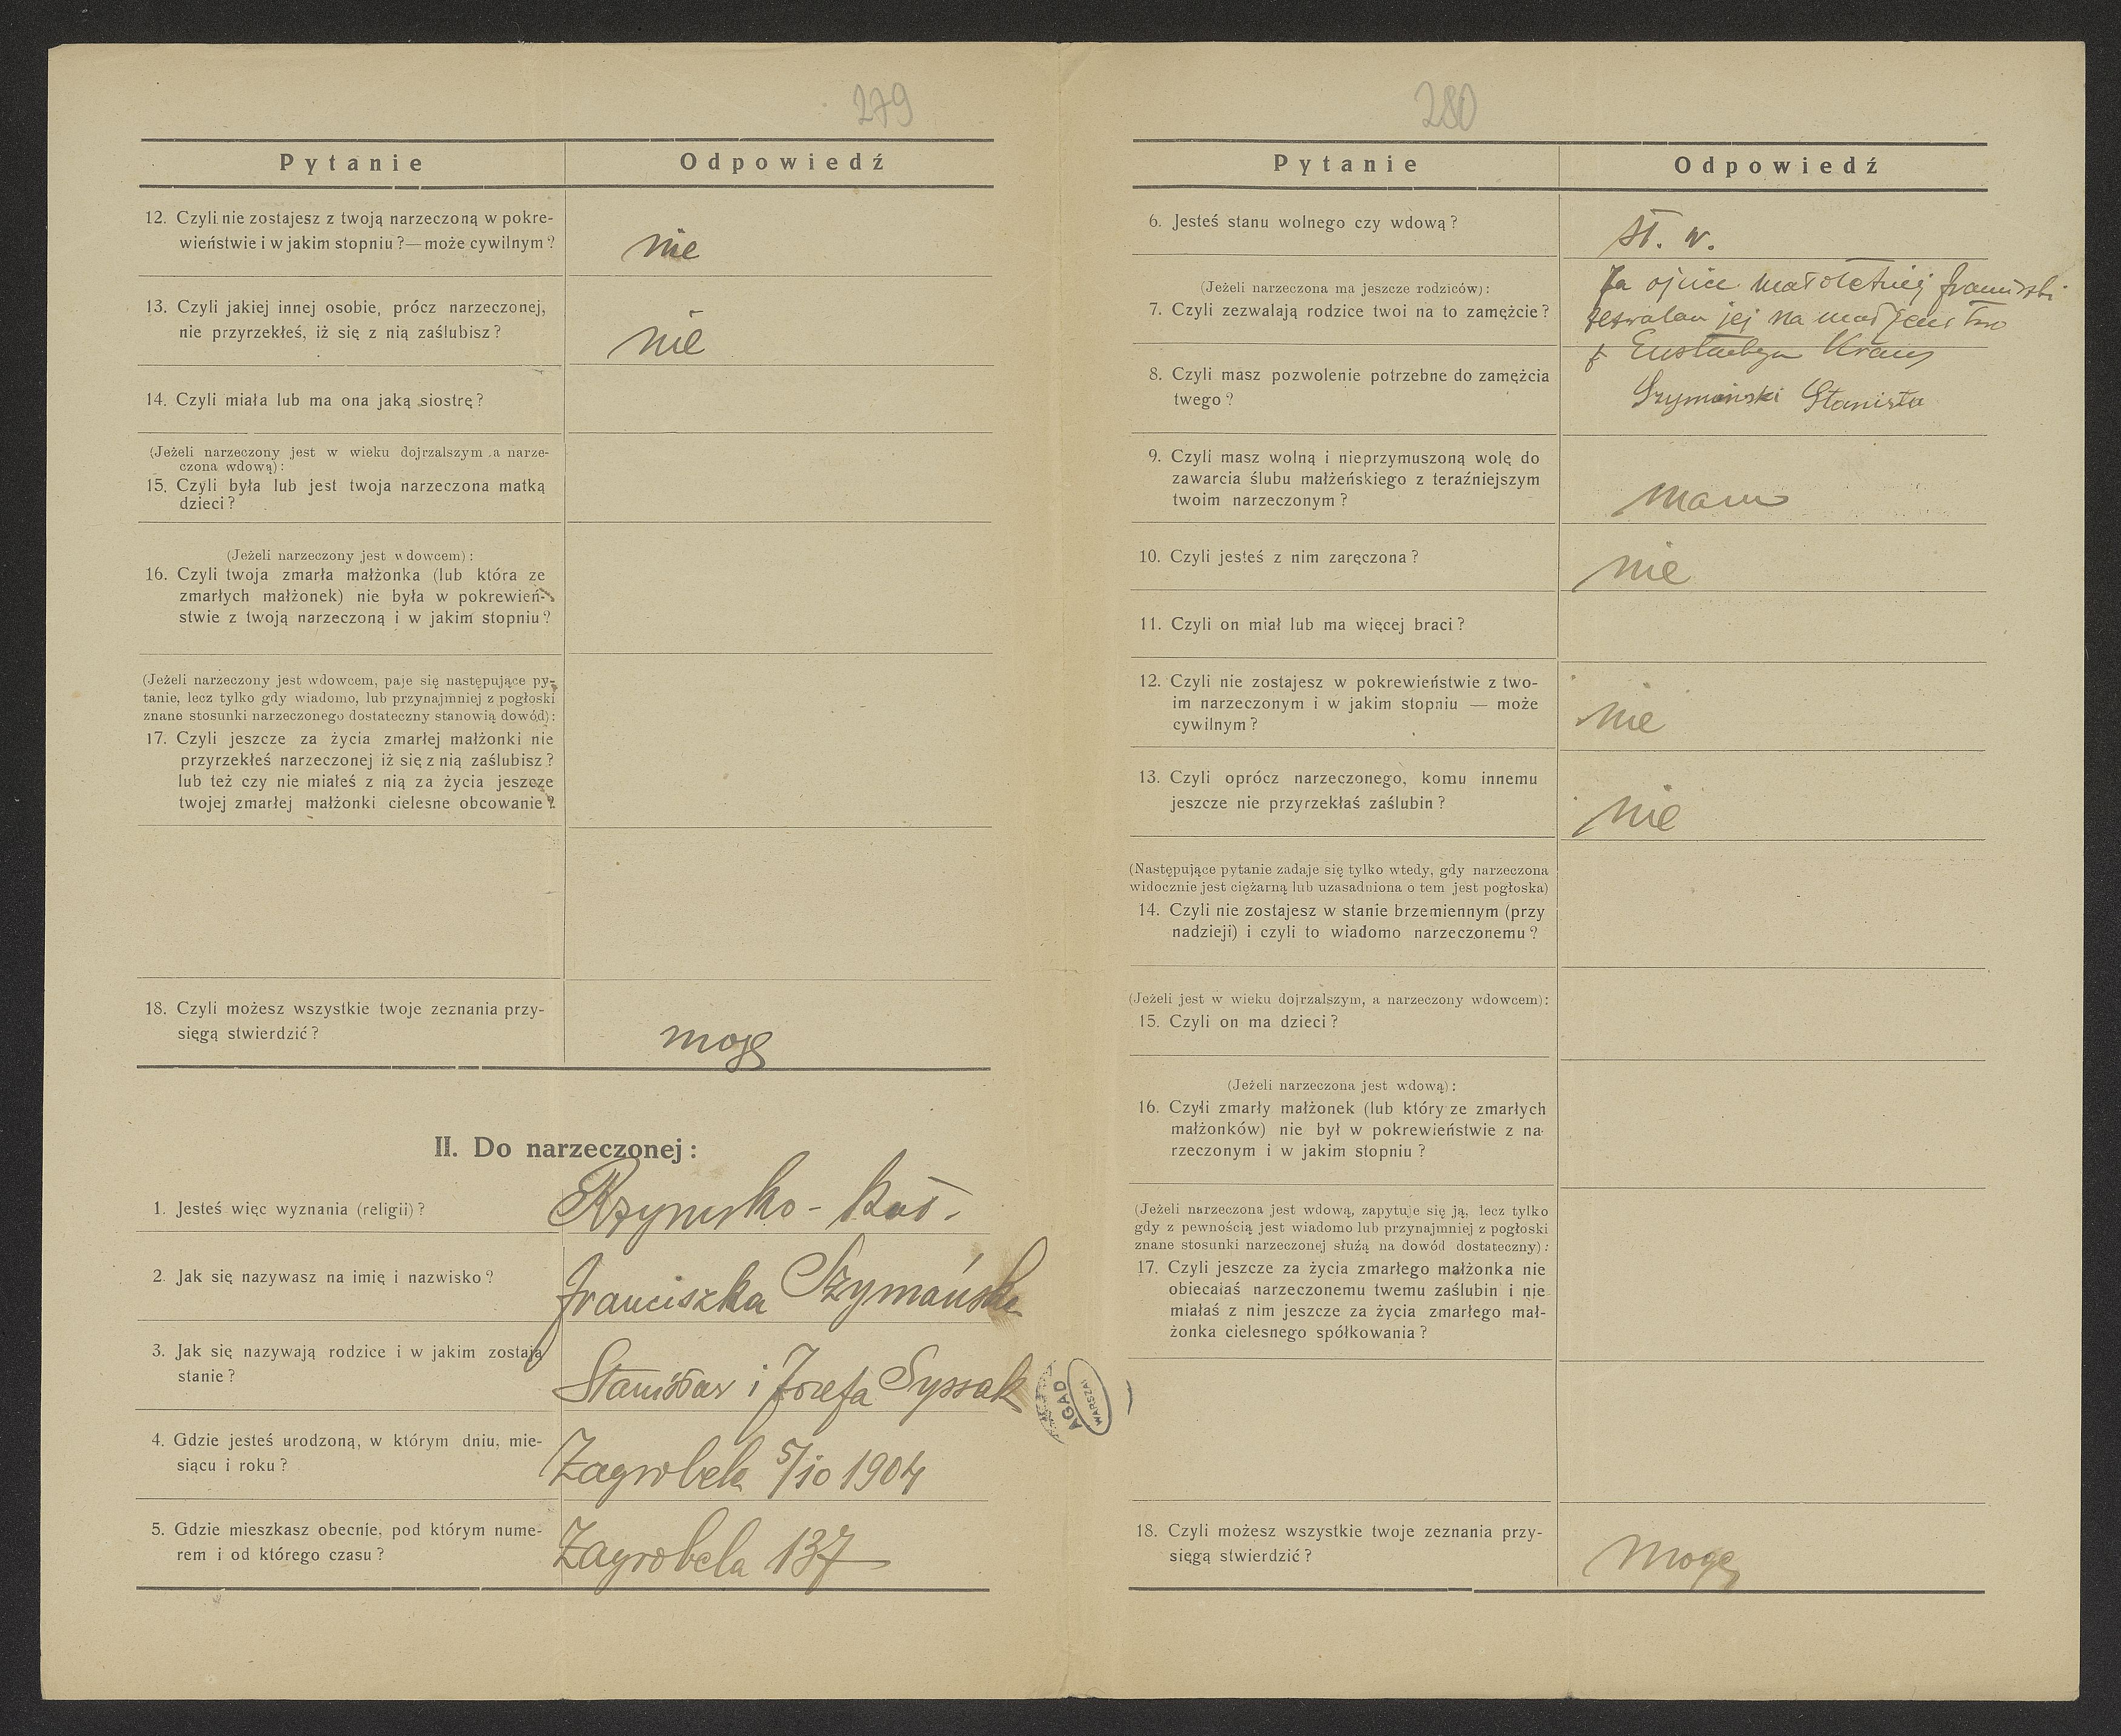 279
Pytanie
Odpowiedź
12. Czyli nie zostajesz z twoją narzeczoną w pokre-
wieństwie i w jakim stopniu?—może cywilnym?
nie
13. Czyli jakiej innej osobie, prócz narzeczonej,
nie przyrzekłeś, iż się z nią zaślubisz?
nie
14. Czyli miała lub ma ona jaką siostrę?
(Jeżeli narzeczony jest w wieku dojrzalszym a narze-
czona wdową):
15. Czyli była lub jest twoja narzeczona matką
dzieci?
(Jeżeli narzeczony jest wdowcem):
16. Czyli twoja zmarła małżonka (lub która ze
zmarłych małżonek) nie była w pokrewień-
stwie z twoją narzeczoną i w jakim stopniu?
(Jeżeli narzeczony jest wdowcem, paje się następujące py-
tanie, lecz tylko gdy wiadomo, lub przynajmniej z pogłoski
znane stosunki narzeczonego dostateczny stanowią dowód):
17. Czyli jeszcze za życia zmarłej małżonki nie
przyrzekłeś narzeczonej iż się z nią zaślubisz?
lub też czy nie miałeś z nią za życia jeszcze
twojej zmarłej małżonki cielesne obcowanie?
18. Czyli możesz wszystkie twoje zeznania przy-
sięgą stwierdzić?
mogę
II. Do narzeczonej:
1. Jesteś więc wyznania (religii)?
Rzymsko-kat.
2. Jak się nazywasz na imię i nazwisko?
Franciszka Szymańska
3. Jak się nazywają rodzice i w jakim zostają
stanie?
Stanisław i Józefa Syssak
4. Gdzie jesteś urodzoną, w którym dniu, mie-
siącu i roku?
Zagrobela 5/10 1904
5. Gdzie mieszkasz obecnie, pod którym nume-
rem i od którego czasu?
Zagrobela 137
AGAD
280
Pytanie
Odpowiedź
6. Jesteś stanu wolnego czy wdową?
st. w.
(Jeżeli narzeczona ma jeszcze rodziców):
7. Czyli zezwalają rodzice twoi na to zamęźcie?
Ja ojciec małoletniej Franciszki
zezwalam jej na małżeństwo
z Eustachym Kraus
8. Czyli masz pozwolenie potrzebne do zamęźcia
twego?
Szymański Stanisła
9. Czyli masz wolną i nieprzymuszoną wolę do
zawarcia ślubu małżeńskiego z teraźniejszym
twoim narzeczonym?
mam
10. Czyli jesteś z nim zaręczona?
nie
11. Czyli on miał lub ma więcej braci?
12. Czyli nie zostajesz w pokrewieństwie z two-
im narzeczonym i w jakim stopniu — może
cywilnym?
nie
13. Czyli oprócz narzeczonego, komu innemu
jeszcze nie przyrzekłaś zaślubin?
nie
(Następujące pytanie zadaje się tylko wtedy, gdy narzeczona
widocznie jest ciężarną lub uzasadniona o tem jest pogłoska)
14. Czyli nie zostajesz w stanie brzemiennym (przy
nadzieji) i czyli to wiadomo narzeczonemu?
(Jeżeli jest w wieku dojrzalszym, a narzeczony wdowcem):
15. Czyli on ma dzieci?
(Jeżeli narzeczona jest wdową):
16. Czyli zmarły małżonek (lub który ze zmarłych
małżonków) nie był w pokrewieństwie z na-
rzeczonym i w jakim stopniu?
(Jeżeli narzeczona jest wdową, zapytuje się ją, lecz tylko
gdy z pewnością jest wiadomo lub przynajmniej z pogłoski
znane stosunki narzeczonej służą na dowód dostateczny):
17. Czyli jeszcze za życia zmarłego małżonka nie
obiecałaś narzeczonemu twemu zaślubin i nie
miałaś z nim jeszcze za życia zmarłego mał-
żonka cielesnego spółkowania?
18. Czyli możesz wszystkie twoje zeznania przy-
sięgą stwierdzić?
mogę